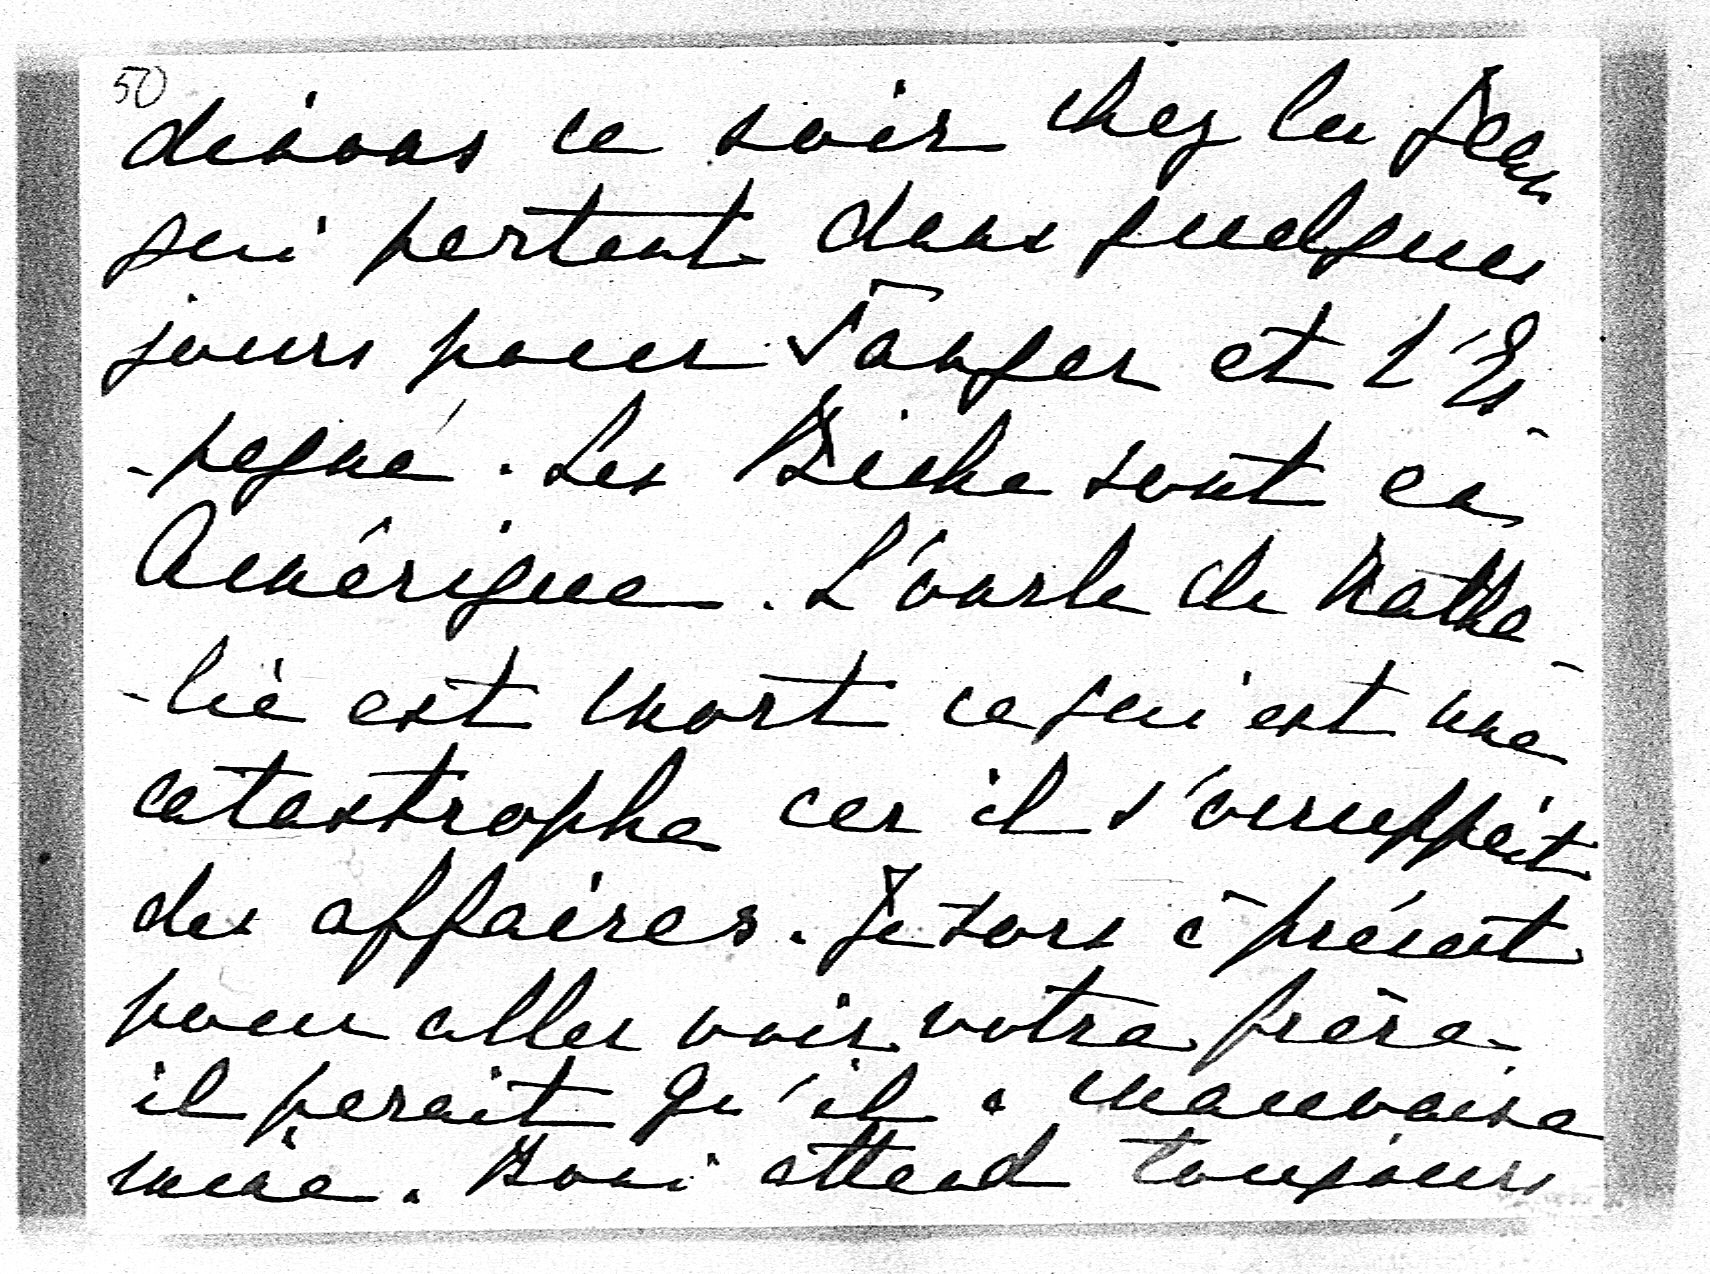 50
dinons ce soir chez les Jean
qui partent dans quelques
jours pour Tanger et l'Es
-pagne. Les Biche sont en
Amérique. L'oncle de Natha-
-lie est mort ce qui est une
catastrophe car il s'occuppait
des affaires. Je sors à présent
pour aller voir votre frère
il parait qu'il a mauvaise
mine. Boni attend toujours